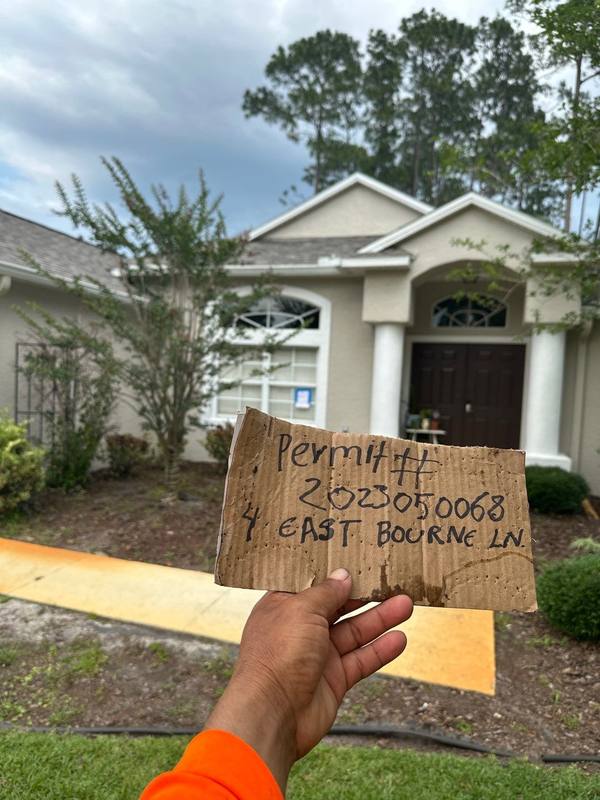 Permit #
2023050068
4 EAST BOURNE LN